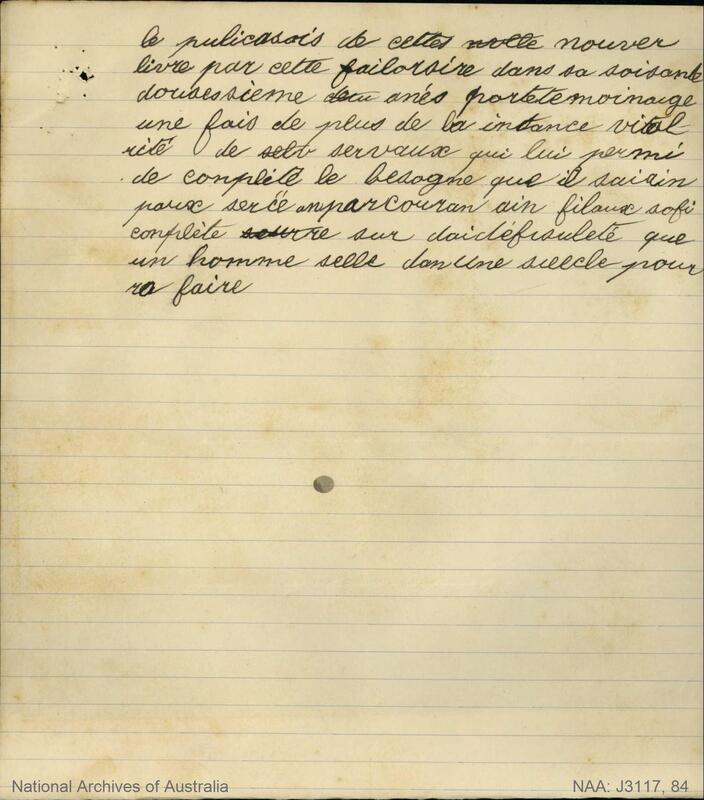 le pulicasois de cettes nouver
livre par cette failorsire dans sa soisante
dousessieme anés portetemoinage
une fois de plus de la intance vital
rité de servaux qui lui permi
de conplété le besogne que il saisin
poux sercé onparcouran ain filaux sofi
conplète sur daidéfisuleté que
un homme selle dan une sieecle pour
ra faire
National Archives of Australia
NAA: J3117, 84